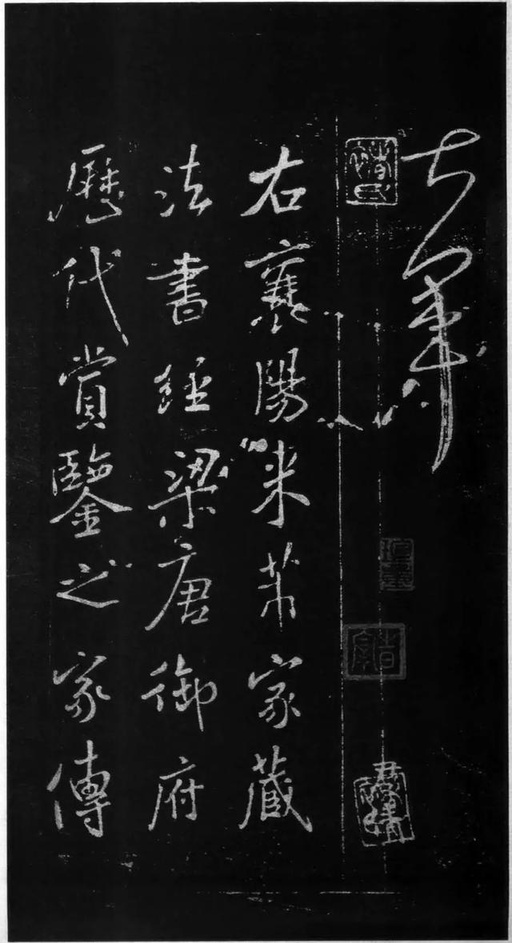 右襄陽米芾家藏
法書經梁唐御府
歷代賞鑒之家傳